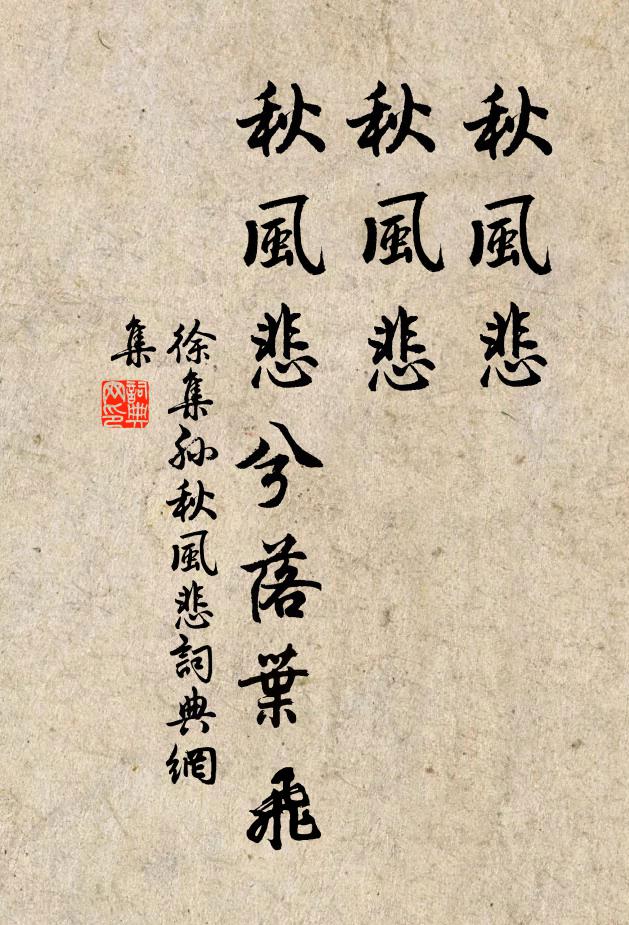 秋風悲
秋風悲
秋風悲兮落葉飛
徐集孫秋風悲詞典網
集
詞典
网印